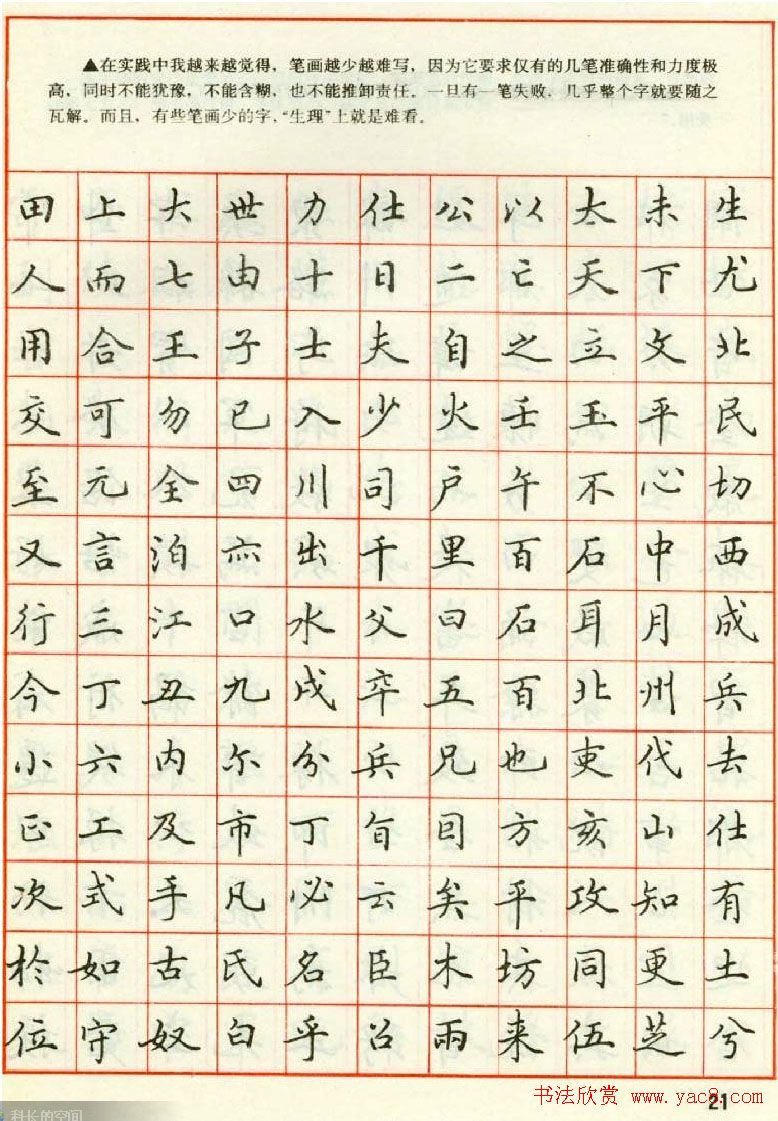 ▲在实践中我越来越觉得，笔画越少越难写，因为它要求仅有的几笔准确性和力度极
高，同时不能犹豫，不能含糊，也不能推卸责任。一旦有一笔失败，几乎整个字就要随之
瓦解。而且，有些笔画少的字，“生理”上就是难看。
田上大世力仕公以太未生
人而七由十日二亡天下尤
用合王子士夫自之立文北
交可勿已入少火壬玉平民
至元全四川司户午不心切
又言泊亦出千里百石中西
行三江口水父曰石耳月成
今丁丑九戌卒五百北州兵
小六内尔分兵兄也吏代去
正工及市丁旨目方亥山仕
次式手凡必云矣平攻知有
於如古氏名臣木坊同更土
位守奴白乎召雨来伍芝兮
书法欣赏 www.yac8.com
21
科长的空间